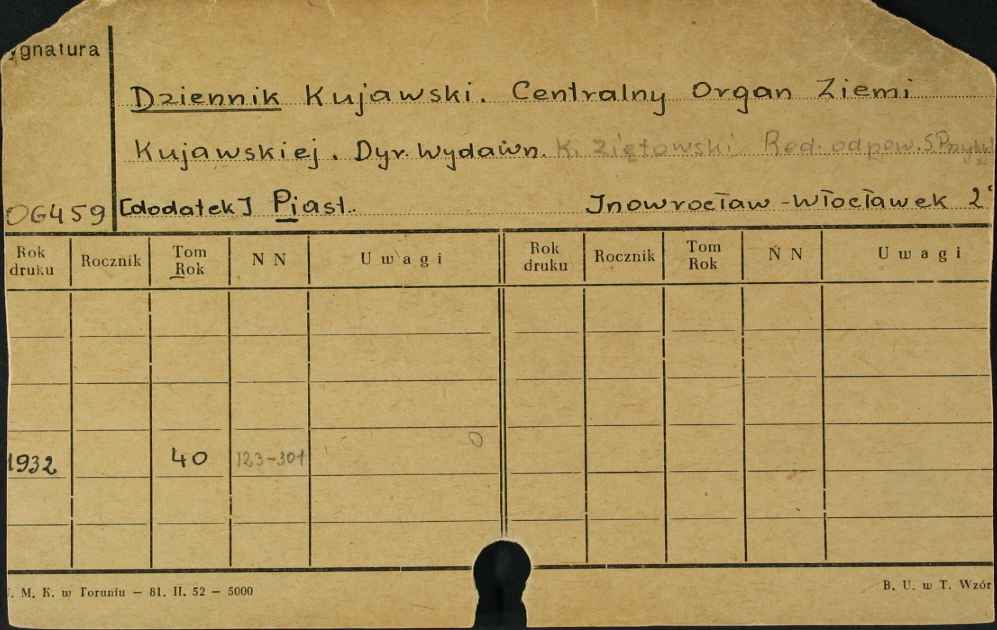 ygnatura
Dziennik Kujawski. Centralny Organ Ziemi
Kujawskiej. Dyr. Wydawn. K. Ziętowski Red. odpow. S.
OG459 [dodatek] Piast. Inowrocław - Włocławek 2°
Rok druku Rocznik Tom Rok N N Uwagi Rok druku Rocznik Tom Rok N N Uwagi
1932 40 123-301 0
. M. K. w Toruniu — 81. II. 52 — 5000 B. U. w T. Wzór